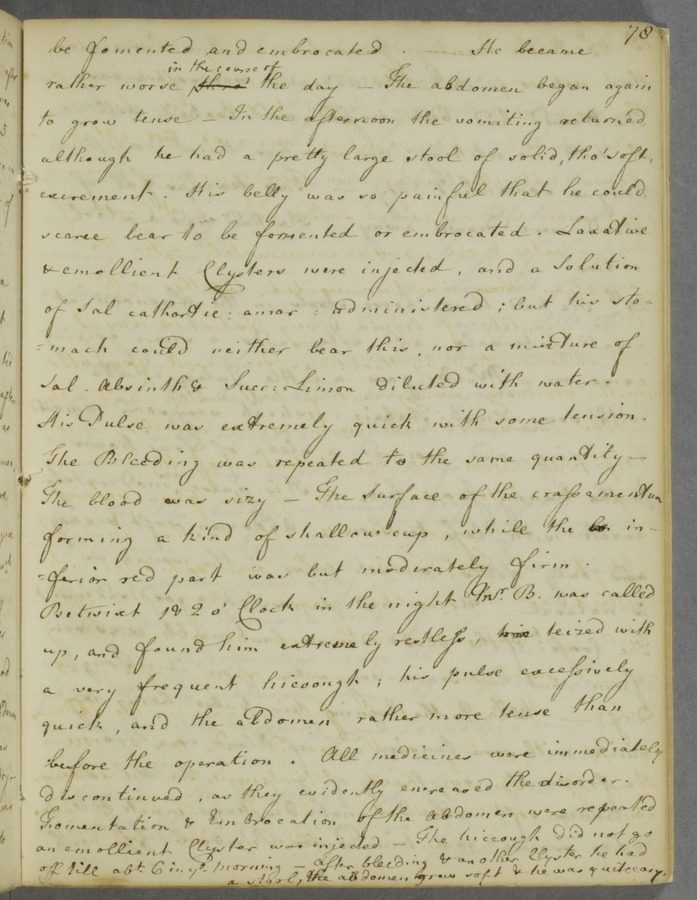 78
be fomented and embrocated . — He became
in the course of
rather worse thro' the day — The abdomen began again
to grow tense — In the afternoon the vomiting returned
although he had a pretty large stool of solid, tho' soft,
excrement . His belly was so painful that he could
scarce bear to be fomented or embrocated . Laxative
& emollient Clysters were injected , and a Solution
of Sal cathartic : amar : administered ; but his sto=
=mach could neither bear this , nor a mixture of
Sal . Absinth & Succ : Limon diluted with water .
His Pulse was extremely quick with some tension .
The Bleeding was repeated to the same quantity —
The blood was sizy — The Surface of the crassamentum
forming a kind of shallow cup , while the in=
=ferior red part was but moderately firm .
Betwixt 1 & 2 o' Clock in the night Mr. B. was called
up, and found him extremely restless, teized with
a very frequent hiccough ; his pulse excessively
quick , and the abdomen rather more tense than
before the operation . All medicines were immediately
discontinued , as they evidently encreased the disorder .
Fomentation & Embrocation of the Abdomen were repeated
an emollient Clyster was injected — The hiccough did not go
off till abt. 6 in ye. morning — after bleeding & another Clyster he had
a stool, the abdomen grew soft & he was quite easy.